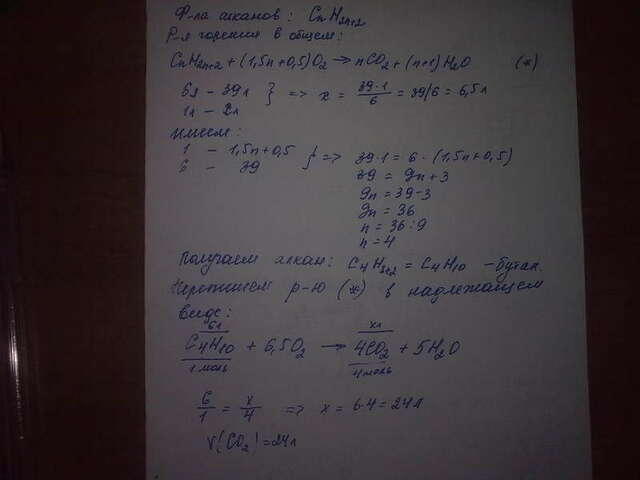 Ф-ла алканов: CnH2n+2
Р-я горения в общем:
CnH2n+2 + (1,5n+0,5)O2 → nCO2 + (n+1)H2O (*)
6л – 39л } => x = 39·1/6 = 39/6 = 6,5л
1л – xл
имеем:
1 – 1,5n+0,5 } => 39·1 = 6·(1,5n+0,5)
6 – 39
39 = 9n+3
9n = 39-3
9n = 36
n = 36:9
n = 4
Получаем алкан: C4H2·4+2 = C4H10 – бутан.
Перепишем р-ю (*) в надлежащем
виде:
6л xл
C4H10 + 6,5O2 → 4CO2 + 5H2O
1 моль 4 моль
6/1 = x/4 => x = 6·4 = 24л
V(CO2) = 24л